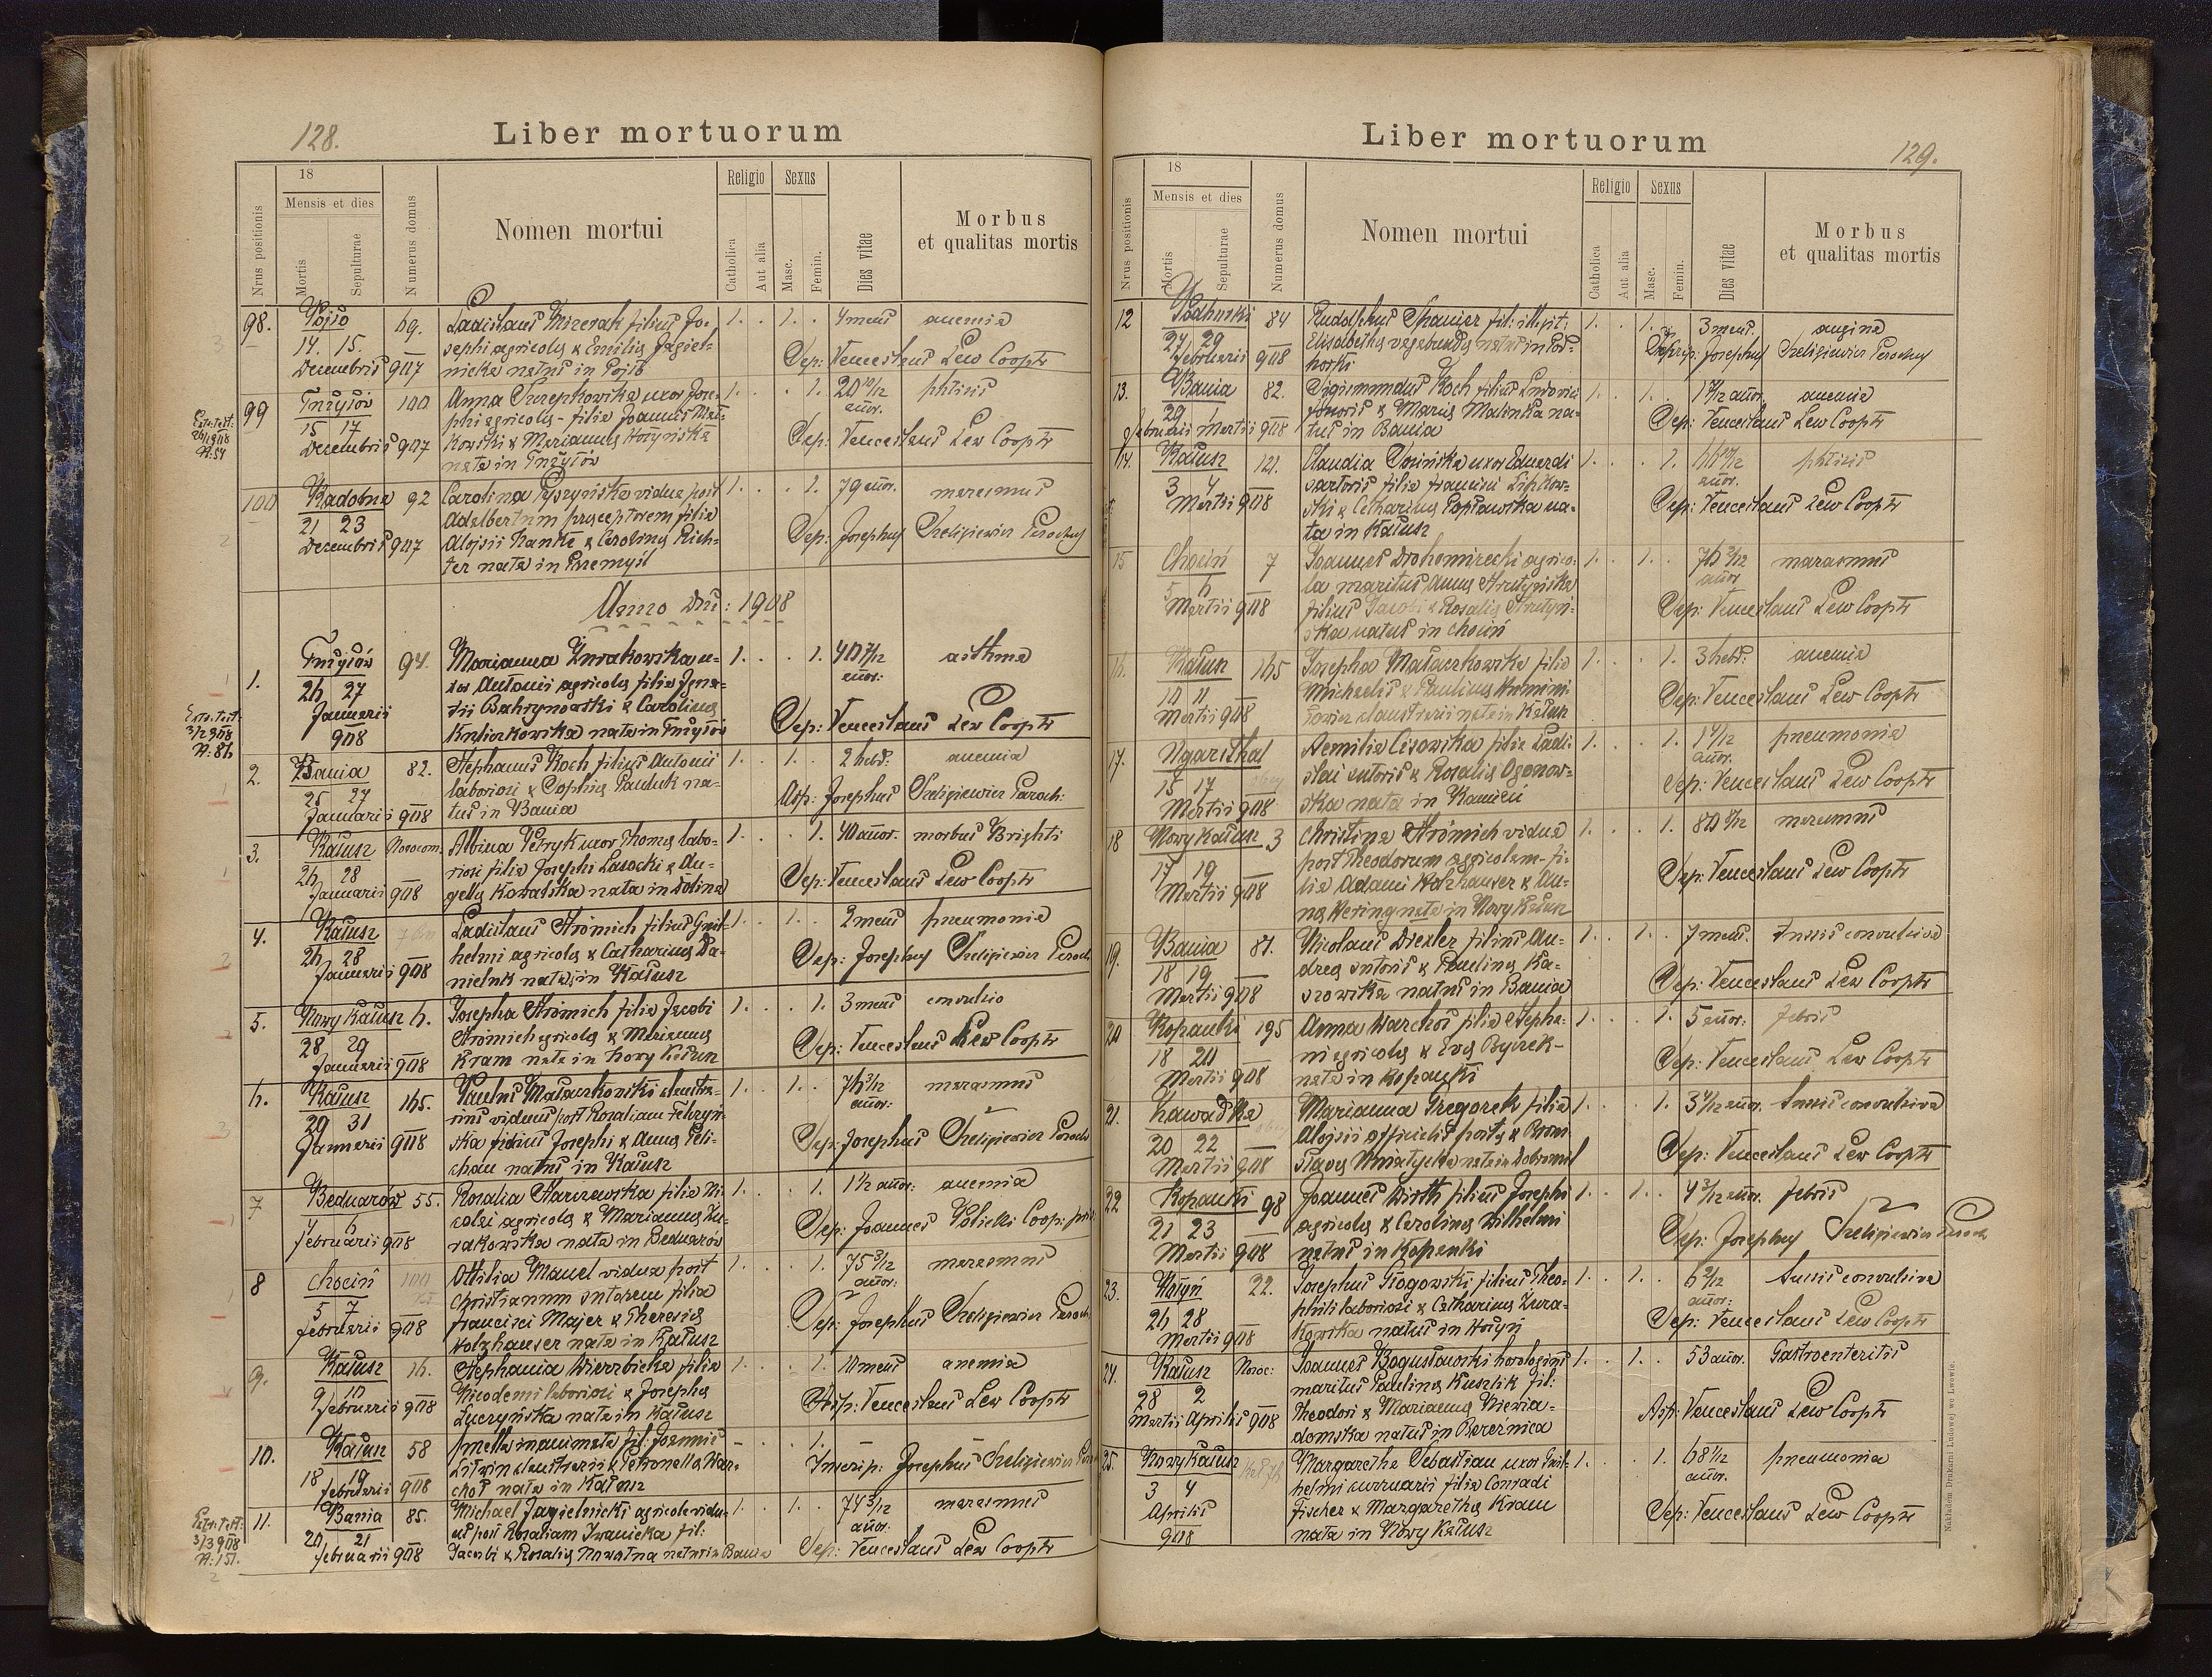 128.
Liber mortuorum
18
Mensis et dies
Religio
Sexus
Nrus positionis
Mortis
Sepulturae
Numerus domus
Nomen mortui
Catholica
Aut alia
Masc.
Femin.
Dies vitae
Morbus
et qualitas mortis
98. Pojło 69. Ladislaus Mizerak filius Jo- 1. 1. 4 mens anemia
14. 15 sephi agricolae & Emilia Jagiel-
Decembris 907 nicka natus in Pojło Sep: Venceslaus Lew Cooptr
99 Tużyłów 100 Anna uxor Jose- 1. 1. 20 10/12 phtisis
15 17 phi agricolae - filia Joannis annor.
Decembris 907 kowski & Mariannae Sep: Venceslaus Lew Cooptr
nata in Tużyłów
Extr. test:
N: 54
100 Kadobna 92 Carolina vidua post 1. 1. 79 annor. marasmus
21 23 Adalbertum praeceptorem filia
Decembris 907 Alojsii Hanke & Carolinae Rich- Sep: Josephus Parochus
ter nata in Przemyśl
Anno Dni: 1908
1. Tużyłów 94. Marianna Żurakowska u- 1. 1. 40 7/12 asthma
26 27 xor Antonii agricolae filia Igna- annor:
Januarii tii & Carolinae Sep: Venceslaus Lew Cooptr
908 nata in Tużyłów
Extr. test:
3/2 908
N: 86
2. Bania 82. Stephanus Koch filius Antonii 1. 1. 2 hebd: anemia
25 27 laboriosi & Sophiae Pauluk na-
Januarii 908 tus in Bania Josephus Paroch:
3. Kałusz Nosocom. Albina Petryk uxor Thomae labo- 1. 1. 40 annor. morbus Brighti
26 28 riosi filia Josephi Lasocki & An-
Januarii 908 gelae Kowalska nata in Dolina Sep: Venceslaus Lew Cooptr
4. Kałusz Ladislaus Strömich filius Guil- 1. 1. 2 mens pneumonia
26 28 helmi agricolae & Catharinae Da-
Januarii 908 nieluk natus in Kałusz Sep: Josephus Paroch
5. Nowy Kałusz 6. Josepha Strömich filia Jacobi 1. 1. 3 mens convulsio
28 29 Strömich agricolae & Mariannae
Januarii 908 Kram nata in Nowy Kałusz Sep: Venceslaus Lew Cooptr
6. Kałusz 165. Paulus Małaczkowski claustra- 1. 1. 76 3/12 marasmus
29 31 rius viduus post Rosaliam annor:
Januarii 908 ska filius Josephi & Annae Sep: Josephus Paroch
natus in Kałusz
7 Bednarów 55. Rosalia Starczewska filia Ni- 1. 1. 1 1/2 annor: anemia
4 6 colai agricolae & Mariannae Żu-
Februarii 908 rakowska nata in Bednarów Sep: Joannes Cooptr
8 Chocin 100 Ottilia Manel vidua post 1. 1. 75 3/12 marasmus
5 7 Christianum sutorem filia annor:
Februarii 908 Francisci Majer & Theresiae Sep: Josephus Paroch
Holzhauser nata in Kałusz
9. Kałusz 16. Stephania Wierzbicka filia 1. 1. 10 mens anemia
9 10 Nicodemi laboriosi & Josephae
Februarii 908 Łuczyńska nata in Kałusz Venceslaus Lew Cooptr
10. Kałusz 58 Puella inanimata fil: Joannis - 1.
18 19 Litwin claustrarii & Petronella War-
Februarii 908 choł nata in Kałusz Inscrip: Josephus
11. Bania 85. Michael Jagielnicki agricola vidu- 1. 1. 74 3/12 marasmus
20 21 us post Rosaliam Iwanicka fil: annor:
Februarii 908 Jacobi & Rosalia natus in Bania Sep: Venceslaus Lew Cooptr
Extr. test:
3/3 908
N: 151.
129.
Liber mortuorum
18
Mensis et dies
Religio
Sexus
Nrus positionis
Mortis
Sepulturae
Numerus domus
Nomen mortui
Catholica
Aut alia
Masc.
Femin.
Dies vitae
Morbus
et qualitas mortis
12 Podhorki 84 Rudolphus fil: illegit: 1. 1. 3 mens. angina
27 29 Elisabetha vagabunda natus in Pod-
Februarii 908 horki Josephus Parochus
13. Bania 82. Sigismundus Koch filius Ludovici 1. 1. annor. anemia
29 & Maria Malinka na-
Februarii Martii 908 tus in Bania Sep: Venceslaus Lew Cooptr
14. Kałusz 121. Claudia uxor Eduardi 1. 1. 66 10/12 phtisis
3 4 sartoris filia Francisci annor.
Martii 908 ski & Catharinae Popławska na- Sep: Venceslaus Lew Cooptr
ta in Kałusz
15 Chocin 7 Joannes Drohomirecki agrico- 1. 1. 76 2/12 marasmus
5 6 la maritus Annae Strutyńska annor
Martii 908 filius Jacobi & Rosalia Strutyń- Sep: Venceslaus Lew Cooptr
ska natus in Chocin
16. Kałusz 165 Josepha Małaczkowska filia 1. 1. 3 hebd: anemia
10 11 Michaelis & Paulinae
Martii 908 claustrarii nata in Kałusz Sep: Venceslaus Lew Cooptr
17. Ugartsthal Aemilia Cisowska filia Ladi- 1. 1. 1 4/12 pneumonia
15 17 slai sutoris & Rosalia Ogonow- annor.
Martii 908 ska nata in Kamień Sep: Venceslaus Lew Cooptr
18 Nowy Kałusz 3 Christina Strömich vidua 1. 1. 80 marasmus
17 19 post Theodorum agricolam - fi-
Martii 908 lia Adami Holzhauser & An- Sep: Venceslaus Lew Cooptr
na Hering nata in Nowy Kałusz
19. Bania 81. Nicolaus Drexler filius An- 1. 1. 7 mens. tussis convulsiva
18 19 dreae sutoris & Paulinae Ka-
Martii 908 natus in Bania Sep: Venceslaus Lew Cooptr
20 Kopanki 195 Anna Warchoł filia Stepha- 1. 1. 5 annor: febris
18 20 ni agricolae & Eva
Martii 908 nata in Kopanki Sep: Venceslaus Lew Cooptr
21. Zawadka Marianna Gregorek filia 1. 1. annor. tussis convulsiva
20 22 Alojsii officialis posta &
Martii 908 nata in Dobromil Sep: Venceslaus Lew Cooptr
22 Kopanki 98 Joannes Wirth filius Josephi 1. 1. 4 3/12 annor. febris
21 23 agricolae & Carolinae Wilhelmi
Martii 908 natus in Kopanki Sep: Josephus Paroch
23. Hołyń 22. Josephus Rogowski filius Theo- 1. 1. 6 2/12 tussis convulsiva
26 28 phili laboriosi & Catharinae Żura- annor:
Martii 908 kowska natus in Hołyń Sep: Venceslaus Lew Cooptr
24. Kałusz Nosoc: Joannes Bogusławski horologius 1. 1. 53 annor. Gastroenteritis
28 2 maritus Paulina Kuszlik fil:
Martii Aprilis 908 Theodori & Mariannae Niewia- Venceslaus Lew Cooptr
domska natus in Bereźnica
25. Nowy Kałusz Margaretha Sebastian uxor Guil- 1. 1. 68 1/2 pneumonia
3 4 helmi filia Conradi annor.
Aprilis Fischer & Margaretha Kram Sep: Venceslaus Lew Cooptr
908 nata in Nowy Kałusz
Nakładem Drukarni Ludowej we Lwowie.